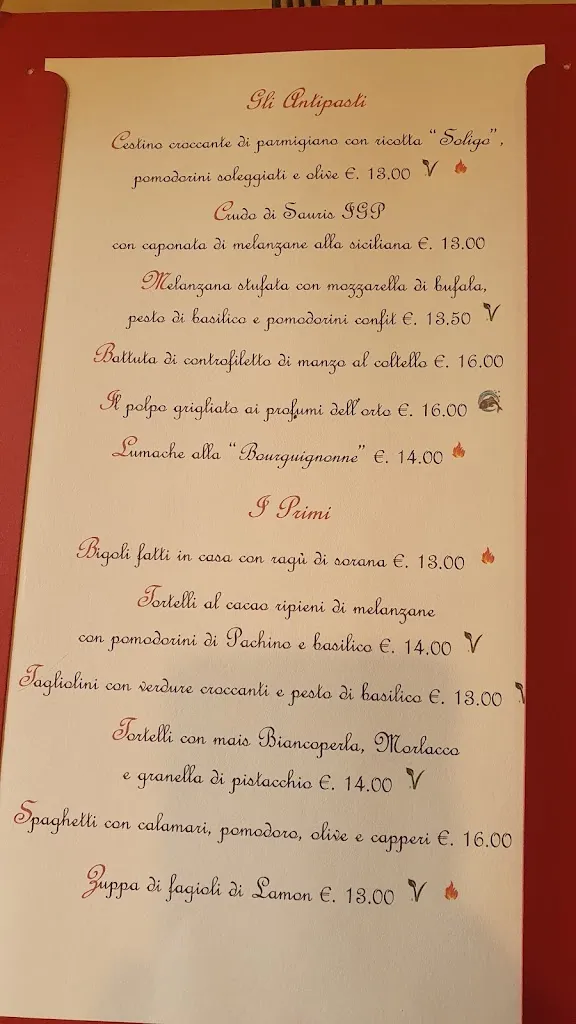 Gli Antipasti
Cestino croccante di parmigiano con ricotta "Soligo",
pomodorini soleggiati e olive €. 13.00 V
Crudo di Sauris IGP
con caponata di melanzane alla siciliana €. 13.00
Melanzana stufata con mozzarella di bufala,
pesto di basilico e pomodorini confit €. 13.50 V
Battuta di controfiletto di manzo al coltello €. 16.00
Il polpo grigliato ai profumi dell'orto €. 16.00
Lumache alla "Bourguignonne" €. 14.00
I Primi
Bigoli fatti in casa con ragù di sorana €. 13.00
Tortelli al cacao ripieni di melanzane
con pomodorini di Pachino e basilico €. 14.00 V
Tagliolini con verdure croccanti e pesto di basilico €. 13.00 V
Tortelli con mais Biancoperla, Morlacco
e granella di pistacchio €. 14.00 V
Spaghetti con calamari, pomodoro, olive e capperi €. 16.00
Zuppa di fagioli di Lamon €. 13.00 V